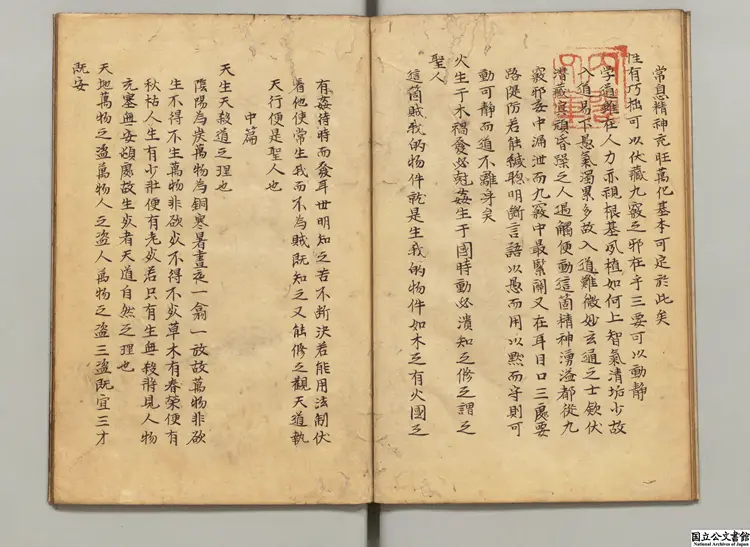 常息精神充旺萬化基本可定於此矣
性有巧拙可以伏藏九竅之邪在乎三要可以動靜
學道雖在人力亦視根基夙植如何上智氣清垢少故
入道易下愚氣濁累多故入道難微妙玄通之士欽伏
潛藏冥頑昏躁之人遇觸便動這箇精神湧溢都從九
竅邪妄中漏泄而九竅中最緊關又在耳目口三處要
路隄防若能緘聰明斷言語以愚而用以默而守則可
動可靜而道不離身矣
火生于木禍發必尅姦生于國時動必潰知之修之謂之
聖人
這箇賊我的物件就是生我的物件如木之有火國之
有姦待時而發耳世明知之若不斷決若能用法制伏
看他使常生我而不為賊既知之又能修之觀天道執
天行便是聖人也
中篇
天生天殺道之理也
陰陽為炭萬物為銅寒暑晝夜一翕一放故萬物非欲
生不得不生萬物非欲死不得不死草木有春榮便有
秋枯人生有少壯便有老死若只有生無殺將見人物
充塞無安頓處故生死者天道自然之理也
天地萬物之盜萬物人之盜人萬物之盜三盜既宜三才
既安
国立公文書館
National Archives of Japan